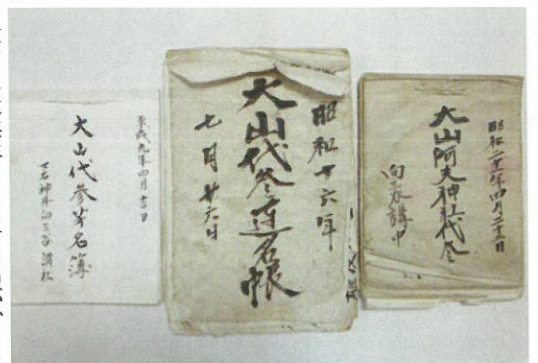 昭和二十二年四月二十三日
大山阿夫利神社代参
向谷講中
昭和十六年
大山代参連名帳
七月廿六日
平成九年四月吉日
大山代参芳名簿
下石神井向三谷講社